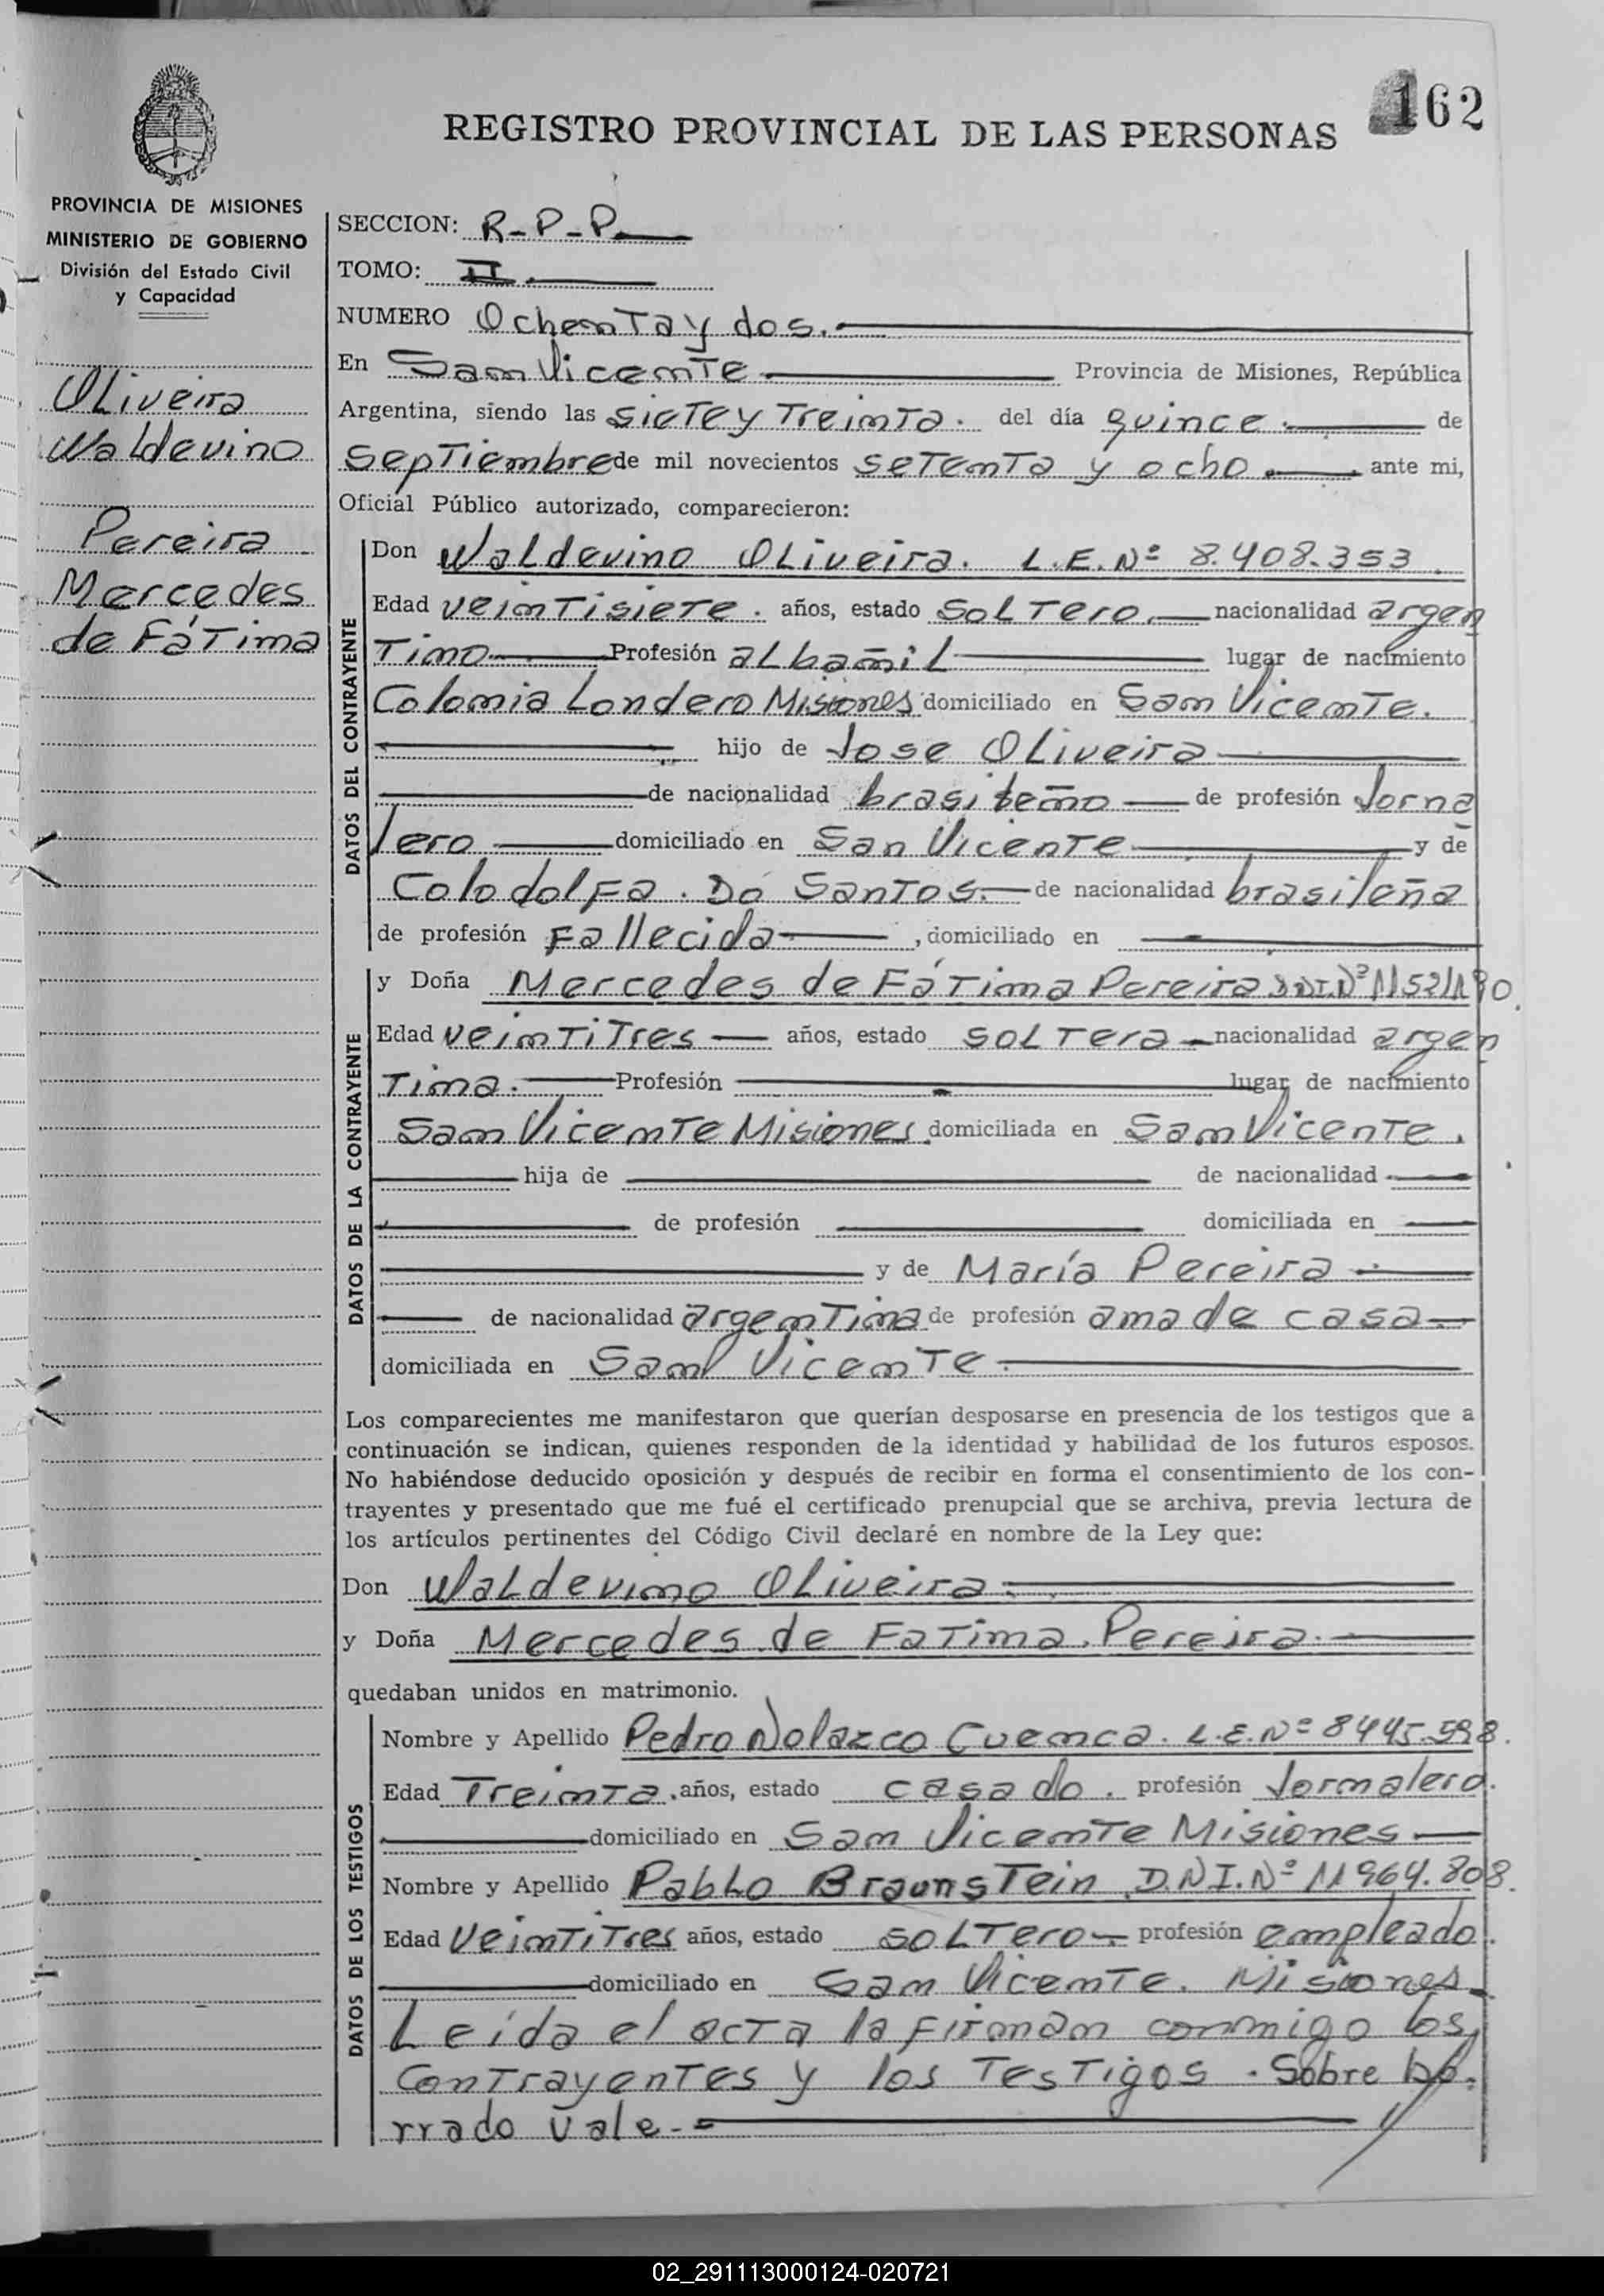 162
REGISTRO PROVINCIAL DE LAS PERSONAS
PROVINCIA DE MISIONES
MINISTERIO DE GOBIERNO
División del Estado Civil
y Capacidad
Oliveira
Waldevino
Pereira
Mercedes
de Fátima
SECCION: R-P-P
TOMO: II.
NUMERO Ochenta y dos.
En San Vicente Provincia de Misiones, República
Argentina, siendo las siete y treinta. del día quince. de
Septiembre de mil novecientos setenta y ocho. ante mi,
Oficial Público autorizado, comparecieron:
DATOS DEL CONTRAYENTE
Don Waldevino Oliveira. L.E.Nº 8.408.353.
Edad veintisiete. años, estado soltero. nacionalidad argen
tino Profesión albañil lugar de nacimiento
Colonia Londero Misiones domiciliado en San Vicente.
hijo de Jose Oliveira
de nacionalidad brasileño de profesión Jorna
lero domiciliado en San Vicente y de
Colodolfa. Do Santos. de nacionalidad brasileña
de profesión Fallecida, domiciliado en
DATOS DE LA CONTRAYENTE
y Doña Mercedes de Fátima Pereira D.N.I.Nº
Edad veintitres años, estado soltera nacionalidad argen
tina. Profesión lugar de nacimiento
San Vicente Misiones domiciliada en San Vicente.
hija de de nacionalidad
de profesión domiciliada en
y de María Pereira
de nacionalidad argentina de profesión ama de casa
domiciliada en San Vicente
Los comparecientes me manifestaron que querían desposarse en presencia de los testigos que a
continuación se indican, quienes responden de la identidad y habilidad de los futuros esposos.
No habiéndose deducido oposición y después de recibir en forma el consentimiento de los con-
trayentes y presentado que me fué el certificado prenupcial que se archiva, previa lectura de
los artículos pertinentes del Código Civil declaré en nombre de la Ley que:
Don Waldevino Oliveira.
y Doña Mercedes de Fatima Pereira.
quedaban unidos en matrimonio.
DATOS DE LOS TESTIGOS
Nombre y Apellido Pedro Nolazco Cuenca. L.E.Nº 8445.598.
Edad Treinta. años, estado casado. profesión Jornalero.
domiciliado en San Vicente Misiones
Nombre y Apellido Pablo Braunstein D.N.I.Nº 11964.808.
Edad Veintitres años, estado soltero profesión empleado.
domiciliado en San Vicente. Misiones
Leída el acta la firman conmigo los
contrayentes y los testigos. Sobre bo.
rrado vale.-
02_291113000124-020721